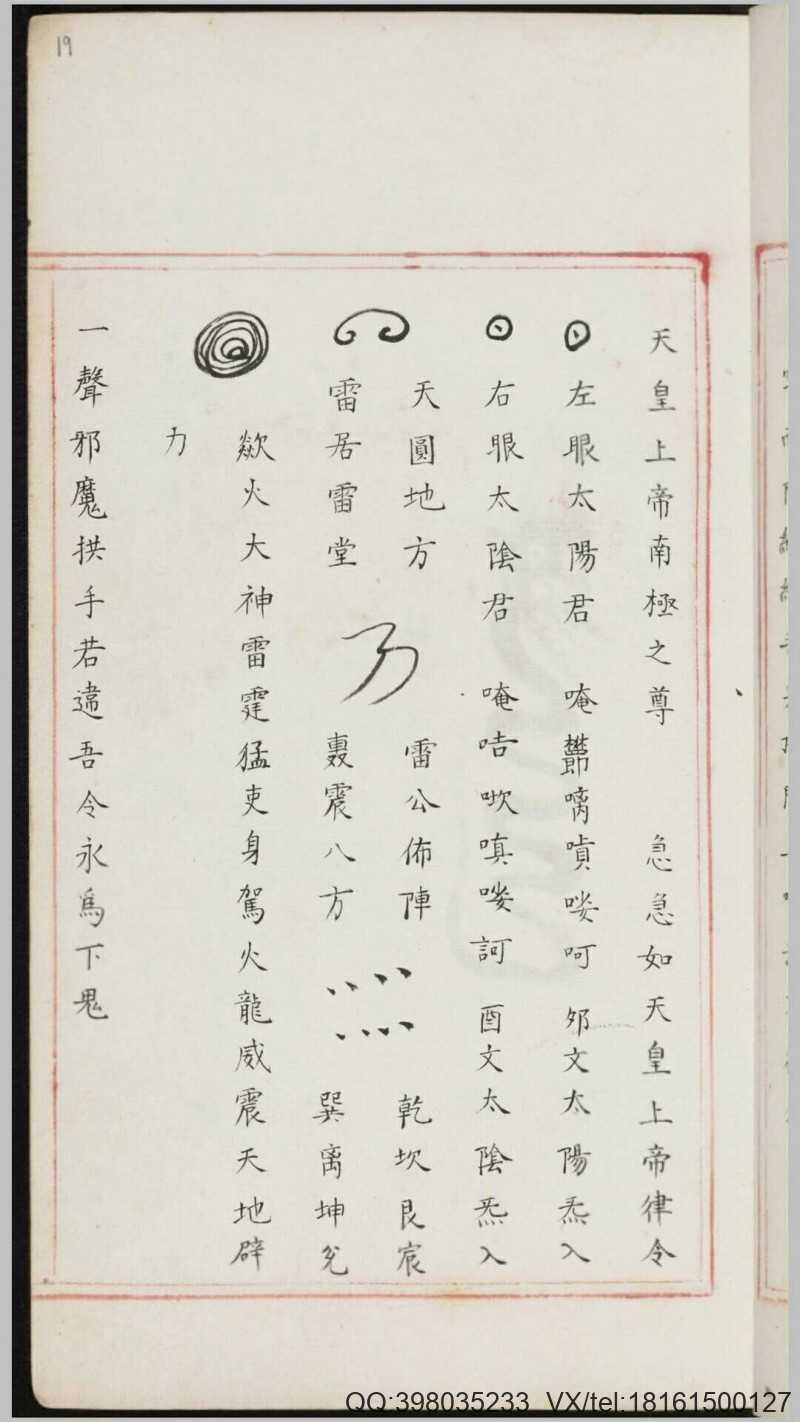 19
天皇上帝南極之尊 急急如天皇上帝律令
左眼太陽君 唵 嘀嗊喽呵 文太陽炁入
右眼太陰君 唵咭 嗔喽訶 酉文太陰炁入
天圓地方 雷公佈陣 乾坎艮宸
雷居雷堂 轟震八方 巽离坤兊
歘火大神雷霆猛吏身駕火龍威震天地辟
力
一聲邪魔拱手若違吾令永爲下鬼
QQ:398035233 VX/tel:18161500127